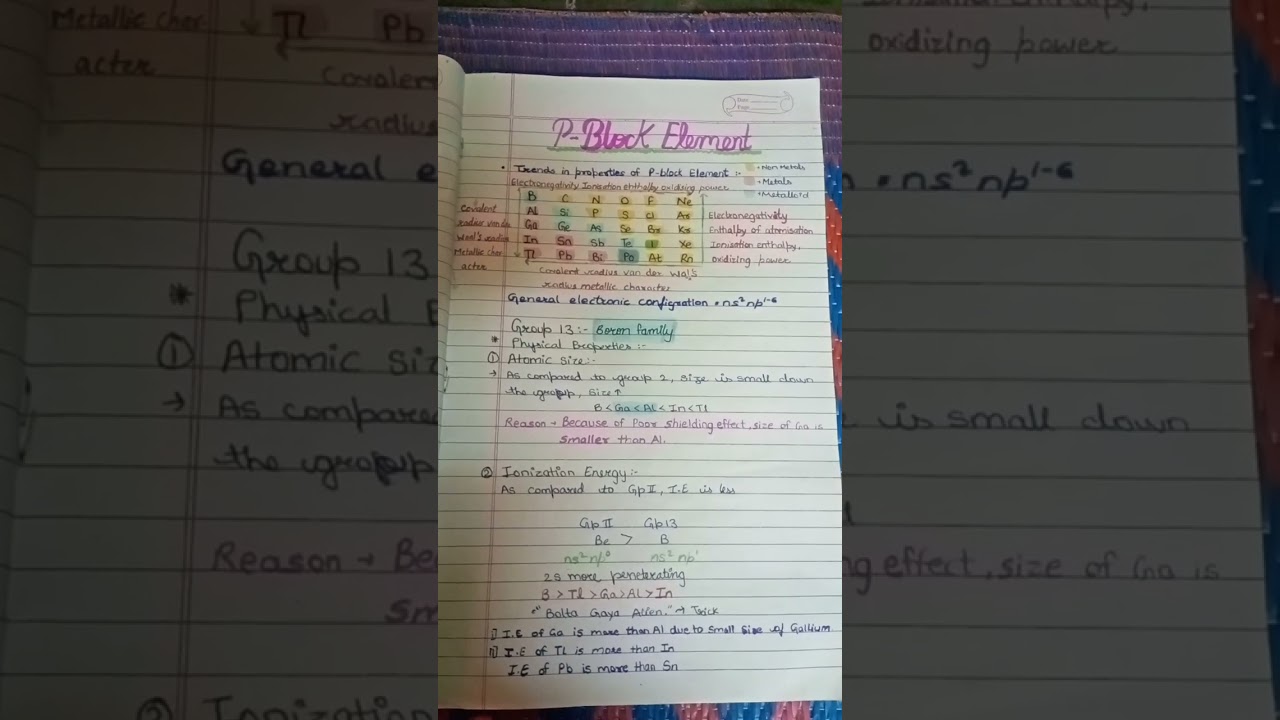 Date
Page
P-Block Element
• Trends in properties of P-block Element :-
• Non Metals
• Metals
• Metalloid
Electronegativity Ionisation enthalby oxidising power
B C N O F Ne
Al Si P S Cl Ar
Ga Ge As Se Br Kr
In Sn Sb Te I Xe
Tl Pb Bi Po At Rn
Covalent
radius van da
Waal's radius
Metallic char
acter
Electronegativity
Enthalpy of atomisation
Ionisation enthalpy,
oxidizing power
Covalent radius van der Wal's
radius metallic character
General electronic configration • ns² np¹⁻⁶
Group 13 :- Boron family
* Physical Properties :-
① Atomic Size :-
→ As compared to group 2, size is small down
the group, size ↑
B < Ga < Al < In < Tl
Reason → Because of Poor shielding effect, size of Ga is
smaller than Al.
② Ionization Energy :-
As compared to Gp II, I.E is less
Gp II Gp 13
Be > B
ns² np⁰ ns² np¹
2s more peneterating
B > Tl > Ga > Al > In
"Balta Gaya Allen." → Trick
i] I.E of Ga is more than Al due to small size of Gallium
ii] I.E of TL is more than In
I.E of Pb is more than Sn